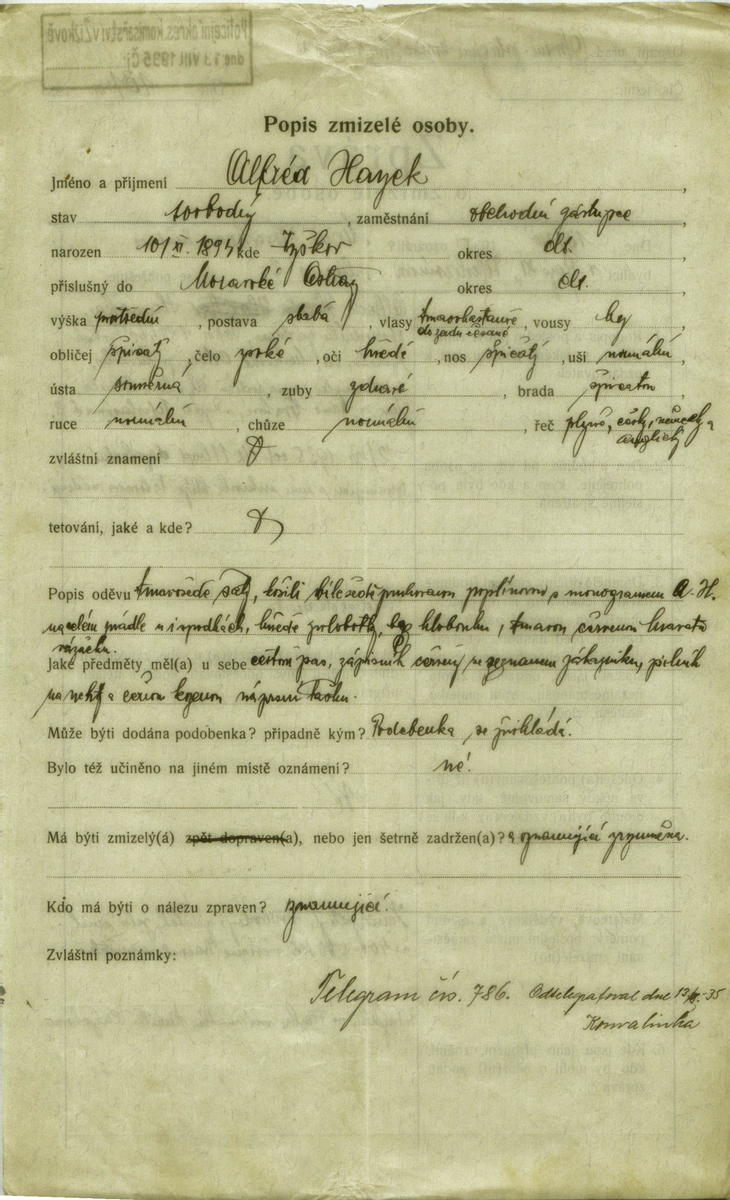 Policejní okres. komisařství v Žižkově
dne 13 VIII 1935 Čj
Popis zmizelé osoby.
Jméno a přijmení Alfréd Hayek,
stav svobodný, zaměstnání obchodní zástupce
narozen 10/XI. 1894 kde okres dt.
příslušný do Moravské Ostravy okres dt.
výška prostřední, postava slabá, vlasy tmavokaštanové, vousy
do zadu česané
obličej špičatý, čelo, oči hnědé, nos špičatý, uši normální,
ústa souměrná, zuby zdravé, brada špičatou,
ruce normální, chůze normální, řeč plyně, česky, německy a
anglicky
zvláštní znamení
tetování, jaké a kde?
Popis oděvu tmavošedé šaty, košili bílešedě pruhovanou poplínovou, s monogramem A. H.
na celém prádle a i spodkách, hnědé polobotky, bez klobouku, tmavou červenou kravatu
vázačku.
Jaké předměty měl(a) u sebe cestovní pas, zápisník černý se seznamem zákazníků, pilník
na nehty a černou koženou náprsní tašku.
Může býti dodána podobenka? případně kým? Podobenka se přikládá.
Bylo též učiněno na jiném místě oznámení? né.
Má býti zmizelý(á) zpět dopraven(a), nebo jen šetrně zadržen(a)? a oznamující vyrozuměna.
Kdo má býti o nálezu zpraven? oznamující.
Zvláštní poznámky:
Telegram čís. 786. Odtelegrafoval dne 13/8.-35
Konvalinka